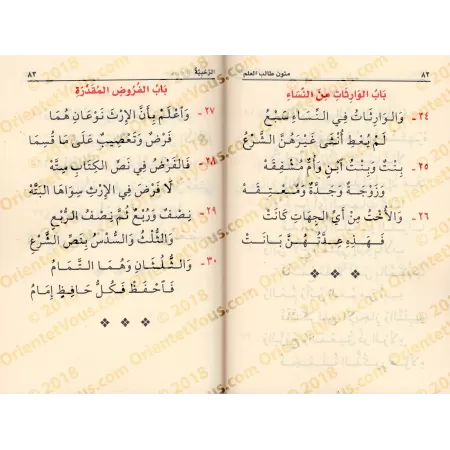 ٨٢ متون طالب العلم
بَابُ الوَارِثَاتِ مِنَ النِّسَاءِ
٢٤ - وَالوَارِثَاتُ فِي النِّسَاءِ سَبْعُ
لَمْ يُعْطِ أُنْثَى غَيْرَهُنَّ الشَّرْعُ
٢٥ - بِنْتٌ وَبِنْتُ ابْنٍ وَأُمٌّ مُشْفِقَهْ
وَزَوْجَةٌ وَجَدَّةٌ وَمُعْتِقَهْ
٢٦ - وَالأُخْتُ مِنْ أَيِّ الجِهَاتِ كَانَتْ
فَهَذِهِ عِدَّتُهُنَّ بَانَتْ
الرَّحَبِيَّةُ ٨٣
بَابُ الفُرُوضِ المُقَدَّرَةِ
٢٧ - وَاعْلَمْ بِأَنَّ الإِرْثَ نَوْعَانِ هُمَا
فَرْضٌ وَتَعْصِيبٌ عَلَى مَا قُسِمَا
٢٨ - فَالفَرْضُ فِي نَصِّ الكِتَابِ سِتَّهْ
لَا فَرْضَ فِي الإِرْثِ سِوَاهَا البَتَّهْ
٢٩ - نِصْفٌ وَرُبْعٌ ثُمَّ نِصْفُ الرُّبْعِ
وَالثُّلْثُ وَالسُّدْسُ بِنَصِّ الشَّرْعِ
٣٠ - وَالثُّلُثَانِ وَهُمَا التَّمَامُ
فَاحْفَظْ فَكُلُّ حَافِظٍ إِمَامُ
© 2018 OrientetVous.com